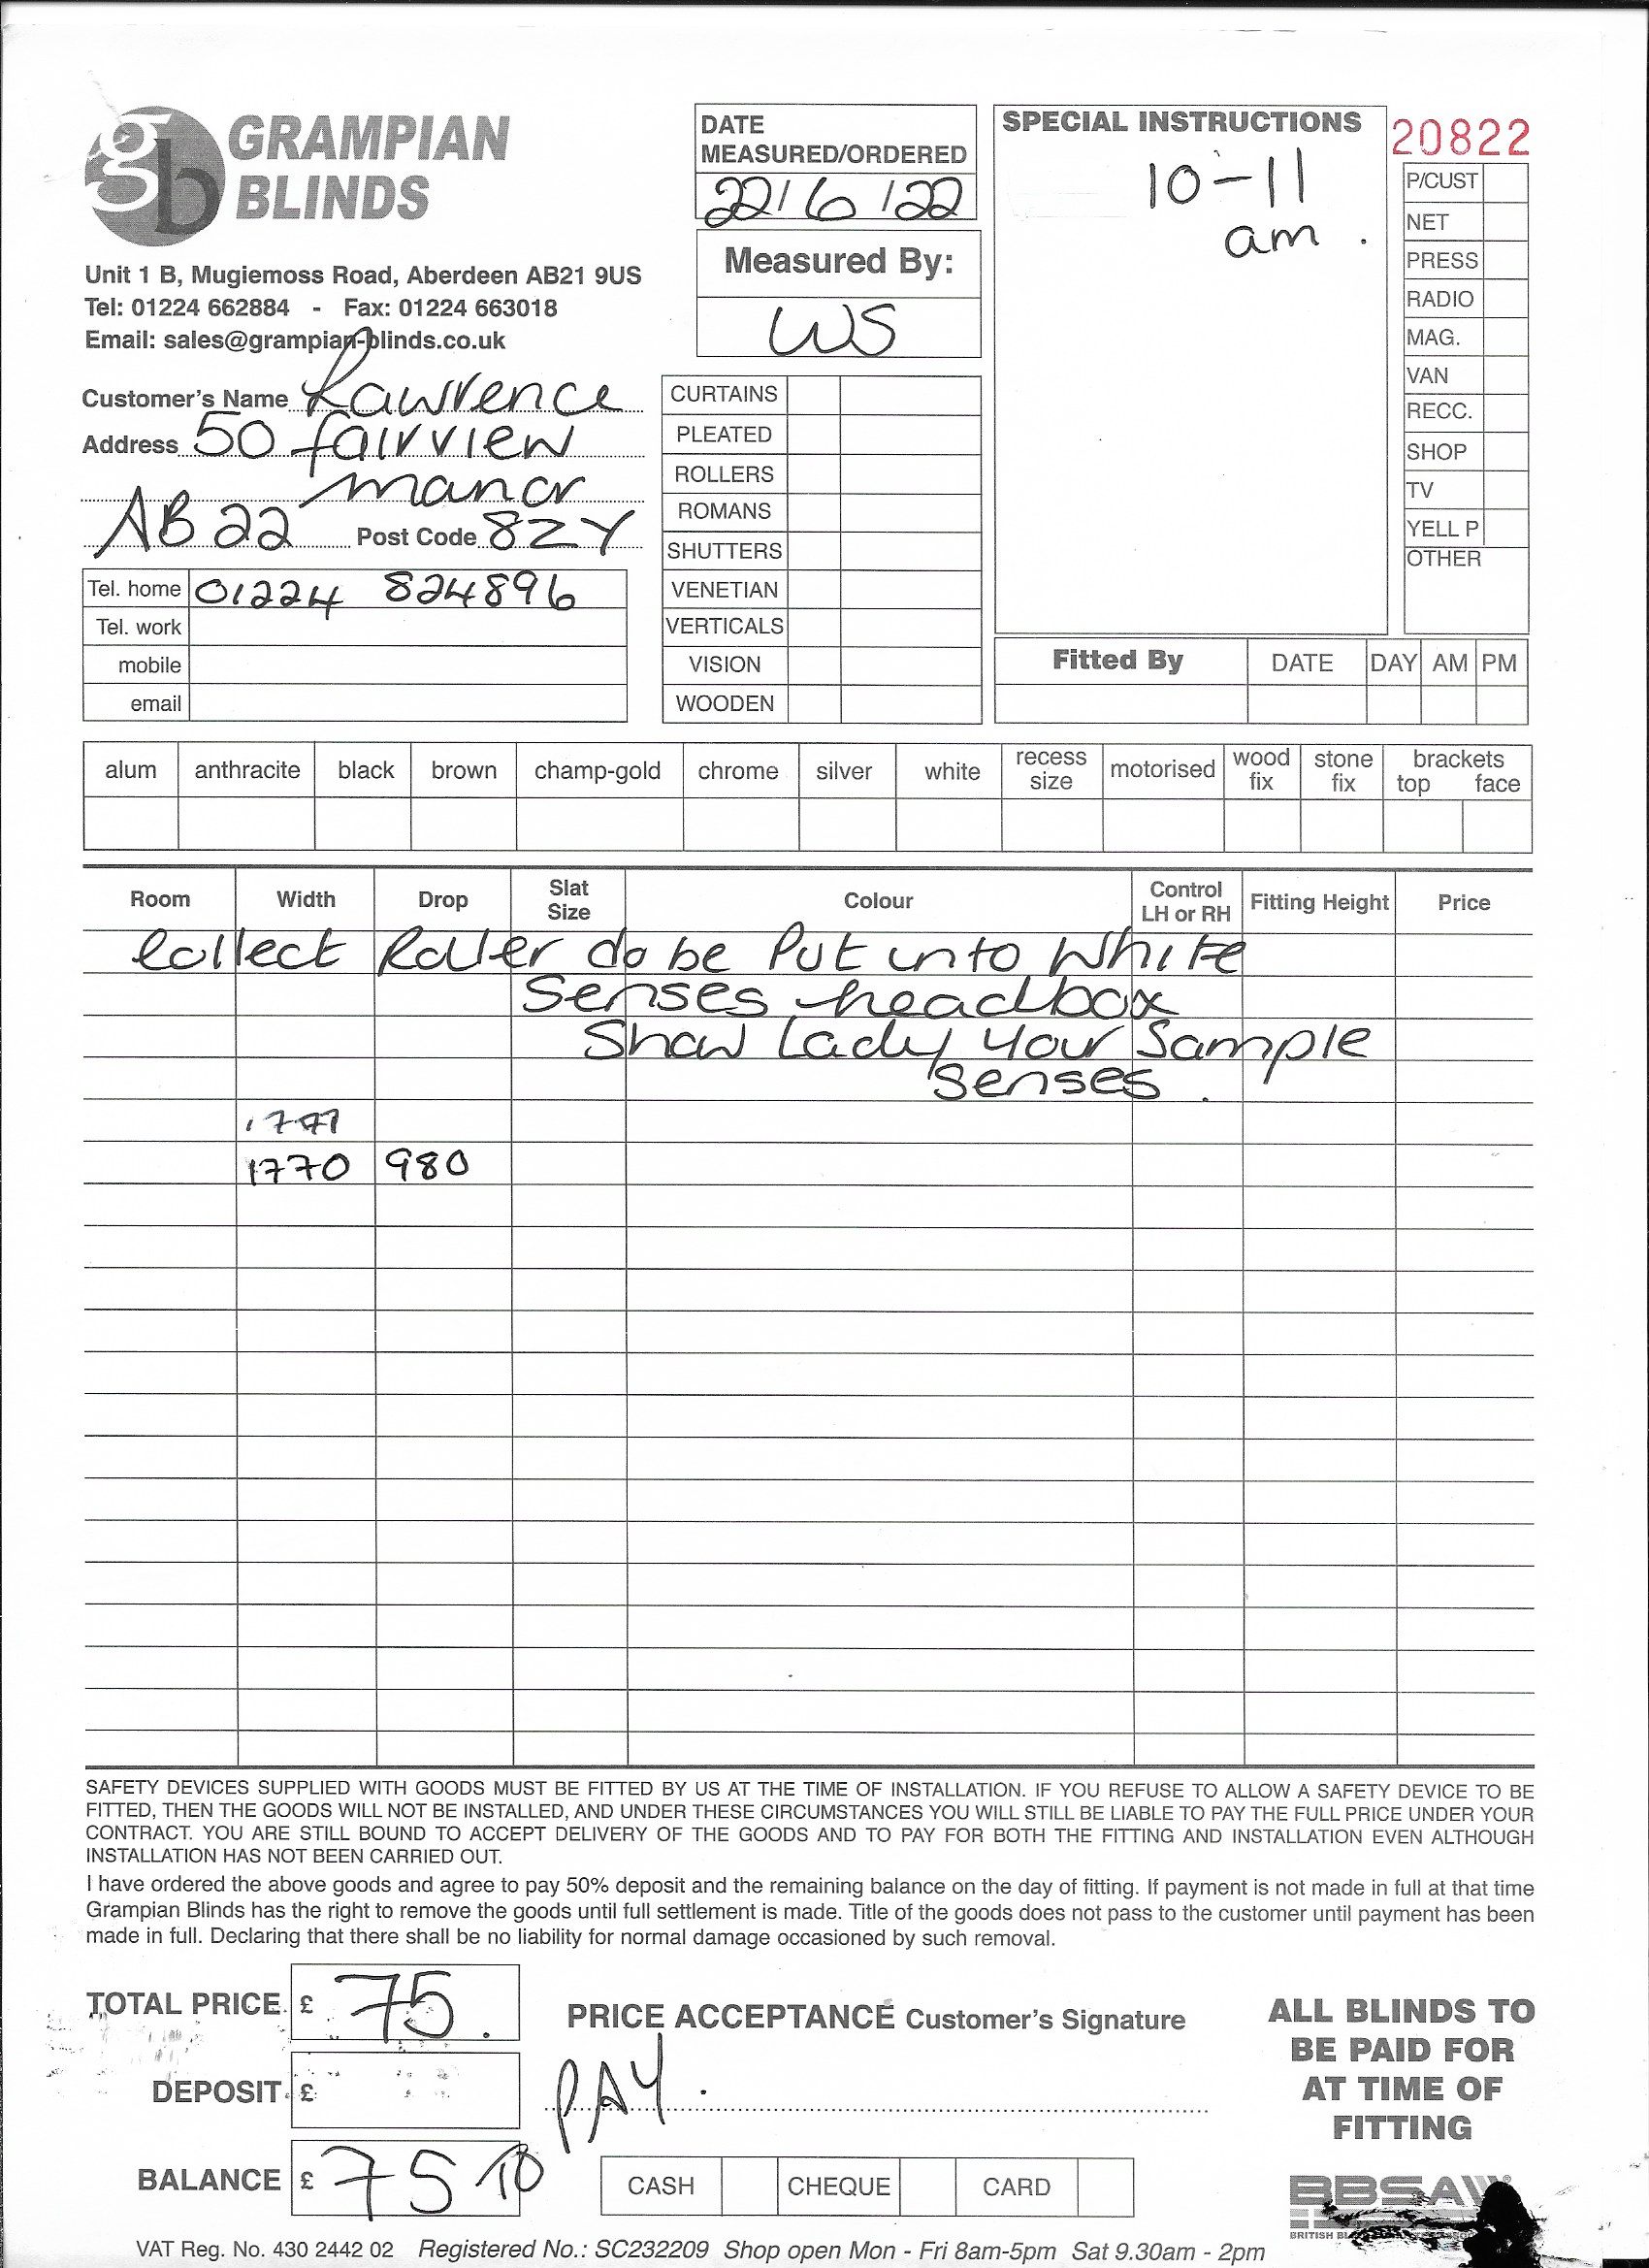 gb GRAMPIAN
BLINDS
Unit 1 B, Mugiemoss Road, Aberdeen AB21 9US
Tel: 01224 662884 - Fax: 01224 663018
Email: sales@grampian-blinds.co.uk
DATE
MEASURED/ORDERED
22/6/22
Measured By:
WS
SPECIAL INSTRUCTIONS
10-11
am.
20822
P/CUST
NET
PRESS
RADIO
MAG.
VAN
RECC.
SHOP
TV
YELL P
OTHER
Customer's Name Lawrence
Address 50 fairview
manor
AB22 Post Code 8ZY
Tel. home 01224 824896
Tel. work
mobile
email
CURTAINS
PLEATED
ROLLERS
ROMANS
SHUTTERS
VENETIAN
VERTICALS
VISION
WOODEN
Fitted By DATE DAY AM PM
alum anthracite black brown champ-gold chrome silver white recess size motorised wood fix stone fix brackets top face
Room Width Drop Slat Size Colour Control LH or RH Fitting Height Price
Collect Roller do be Put into White
Senses headbox
Show Lady your Sample
Senses.
1770 980
SAFETY DEVICES SUPPLIED WITH GOODS MUST BE FITTED BY US AT THE TIME OF INSTALLATION. IF YOU REFUSE TO ALLOW A SAFETY DEVICE TO BE
FITTED, THEN THE GOODS WILL NOT BE INSTALLED, AND UNDER THESE CIRCUMSTANCES YOU WILL STILL BE LIABLE TO PAY THE FULL PRICE UNDER YOUR
CONTRACT. YOU ARE STILL BOUND TO ACCEPT DELIVERY OF THE GOODS AND TO PAY FOR BOTH THE FITTING AND INSTALLATION EVEN ALTHOUGH
INSTALLATION HAS NOT BEEN CARRIED OUT.
I have ordered the above goods and agree to pay 50% deposit and the remaining balance on the day of fitting. If payment is not made in full at that time
Grampian Blinds has the right to remove the goods until full settlement is made. Title of the goods does not pass to the customer until payment has been
made in full. Declaring that there shall be no liability for normal damage occasioned by such removal.
TOTAL PRICE £ 75.
DEPOSIT £
BALANCE £ 75
PRICE ACCEPTANCE Customer's Signature
PAY.
CASH CHEQUE CARD
ALL BLINDS TO
BE PAID FOR
AT TIME OF
FITTING
BBSA
BRITISH
VAT Reg. No. 430 2442 02 Registered No.: SC232209 Shop open Mon - Fri 8am-5pm Sat 9.30am - 2pm